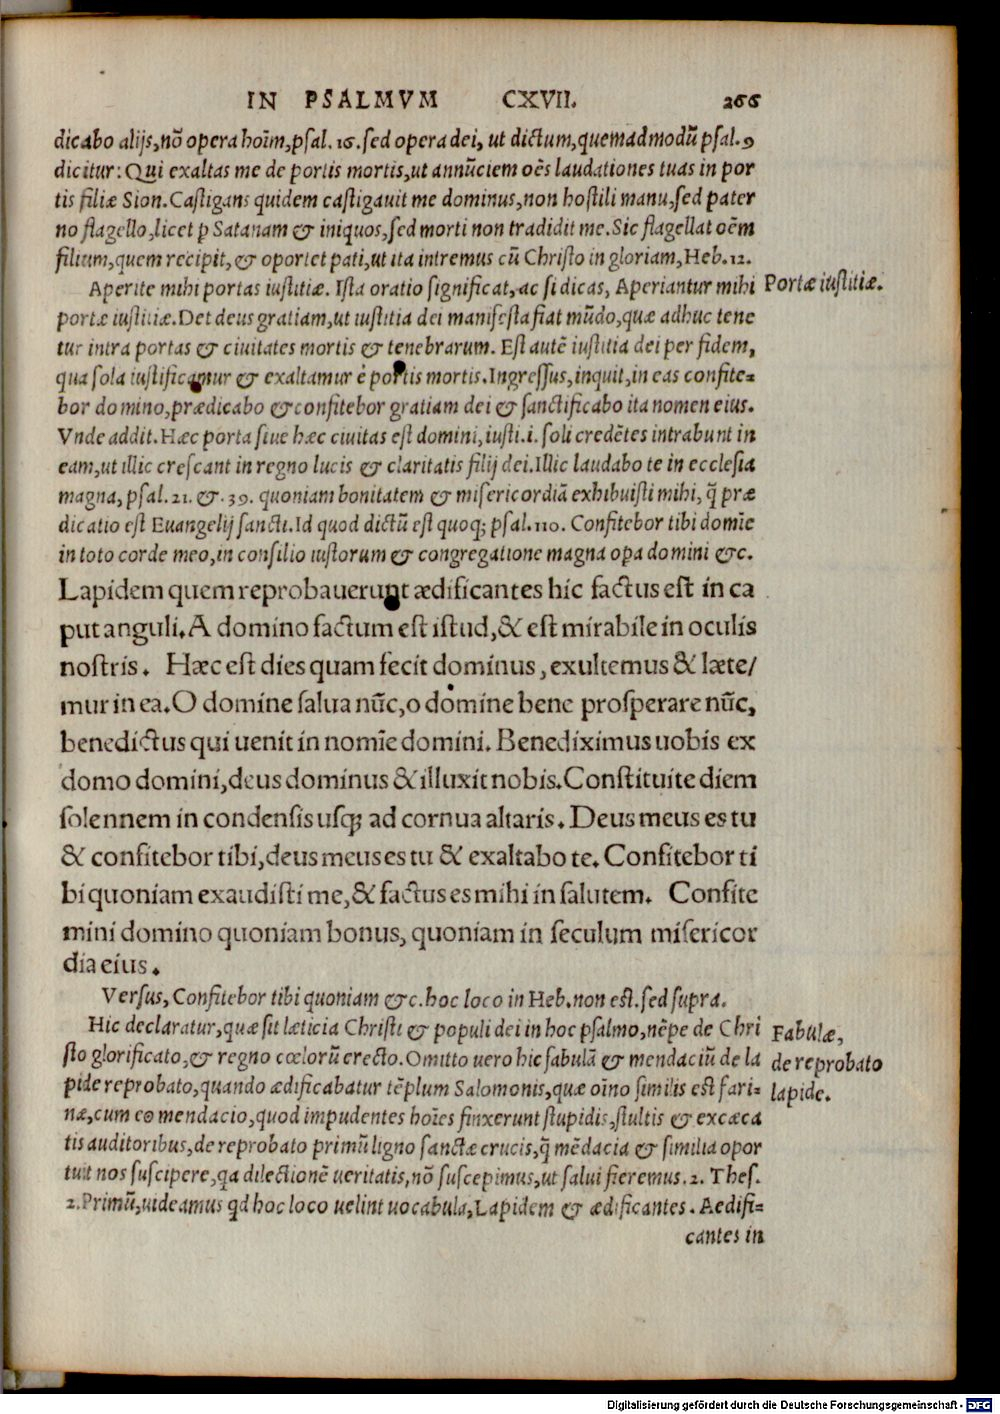 IN PSALMVM CXVII. 266
dicabo alijs, nõ opera hoĩm, psal. 16. sed opera dei, ut dictum, quemadmodũ psal. 9
dicitur: Qui exaltas me de portis mortis, ut annũciem oẽs laudationes tuas in por
tis filiæ Sion. Castigans quidem castigauit me dominus, non hostili manu, sed pater
no flagello, licet ꝑ Satanam & iniquos, sed morti non tradidit me. Sic flagellat oẽm
filium, quem recipit, & oportet pati, ut ita intremus cũ Christo in gloriam, Heb. 12.
Aperite mihi portas iustitiæ. Ista oratio significat, ac si dicas, Aperiantur mihi
Portæ iustitiæ.
portæ iustitiæ. Det deus gratiam, ut iustitia dei manifesta fiat mũdo, quæ adhuc tene
tur intra portas & ciuitates mortis & tenebrarum. Est autẽ iustitia dei per fidem,
qua sola iustificamur & exaltamur è portis mortis. Ingressus, inquit, in eas confite-
bor domino, prædicabo & confitebor gratiam dei & sanctificabo ita nomen eius.
Vnde addit. Hæc porta siue hæc ciuitas est domini, iusti .i. soli credẽtes intrabunt in
eam, ut illic crescant in regno lucis & claritatis filij dei. Illic laudabo te in ecclesia
magna, psal. 21. & .39. quoniam bonitatem & misericordiã exhibuisti mihi, q̃ præ
dicatio est Euangelij sancti. Id quod dictũ est quoq; psal. 110. Confitebor tibi domĩe
in toto corde meo, in consilio iustorum & congregatione magna oꝑa domini &c.
Lapidem quem reprobauerunt ædificantes hic factus est in ca
put anguli. A domino factum est istud, & est mirabile in oculis
nostris. Hæc est dies quam fecit dominus, exultemus & læte/
mur in ea. O domine salua nũc, o domine bene prosperare nũc,
benedictus qui uenit in nomĩe domini. Benediximus uobis ex
domo domini, deus dominus & illuxit nobis. Constituite diem
solennem in condensis usq; ad cornua altaris. Deus meus es tu
& confitebor tibi, deus meus es tu & exaltabo te. Confitebor ti
bi quoniam exaudisti me, & factus es mihi in salutem. Confite
mini domino quoniam bonus, quoniam in seculum misericor
dia eius.
Versus, Confitebor tibi quoniam &c. hoc loco in Heb. non est. sed supra.
Hic declaratur, quæ sit læticia Christi & populi dei in hoc psalmo, nẽpe de Chri
sto glorificato, & regno cœlorũ erecto. Omitto uero hic fabulã & mendaciũ de la
pide reprobato, quando ædificabatur tẽplum Salomonis, quæ oĩno similis est fari-
næ, cum eo mendacio, quod impudentes hoĩes finxerunt stupidis, stultis & excæca
tis auditoribus, de reprobato primũ ligno sanctæ crucis, q̃ mẽdacia & similia opor
tuit nos suscipere, qa dilectionẽ ueritatis, nõ suscepimus, ut salui fieremus. 2. Thes.
2. Primũ, uideamus qd hoc loco uelint uocabula, Lapidem & ædificantes. Aedifi-
Fabulæ,
de reprobato
lapide.
cantes in
Digitalisierung gefördert durch die Deutsche Forschungsgemeinschaft - DFG